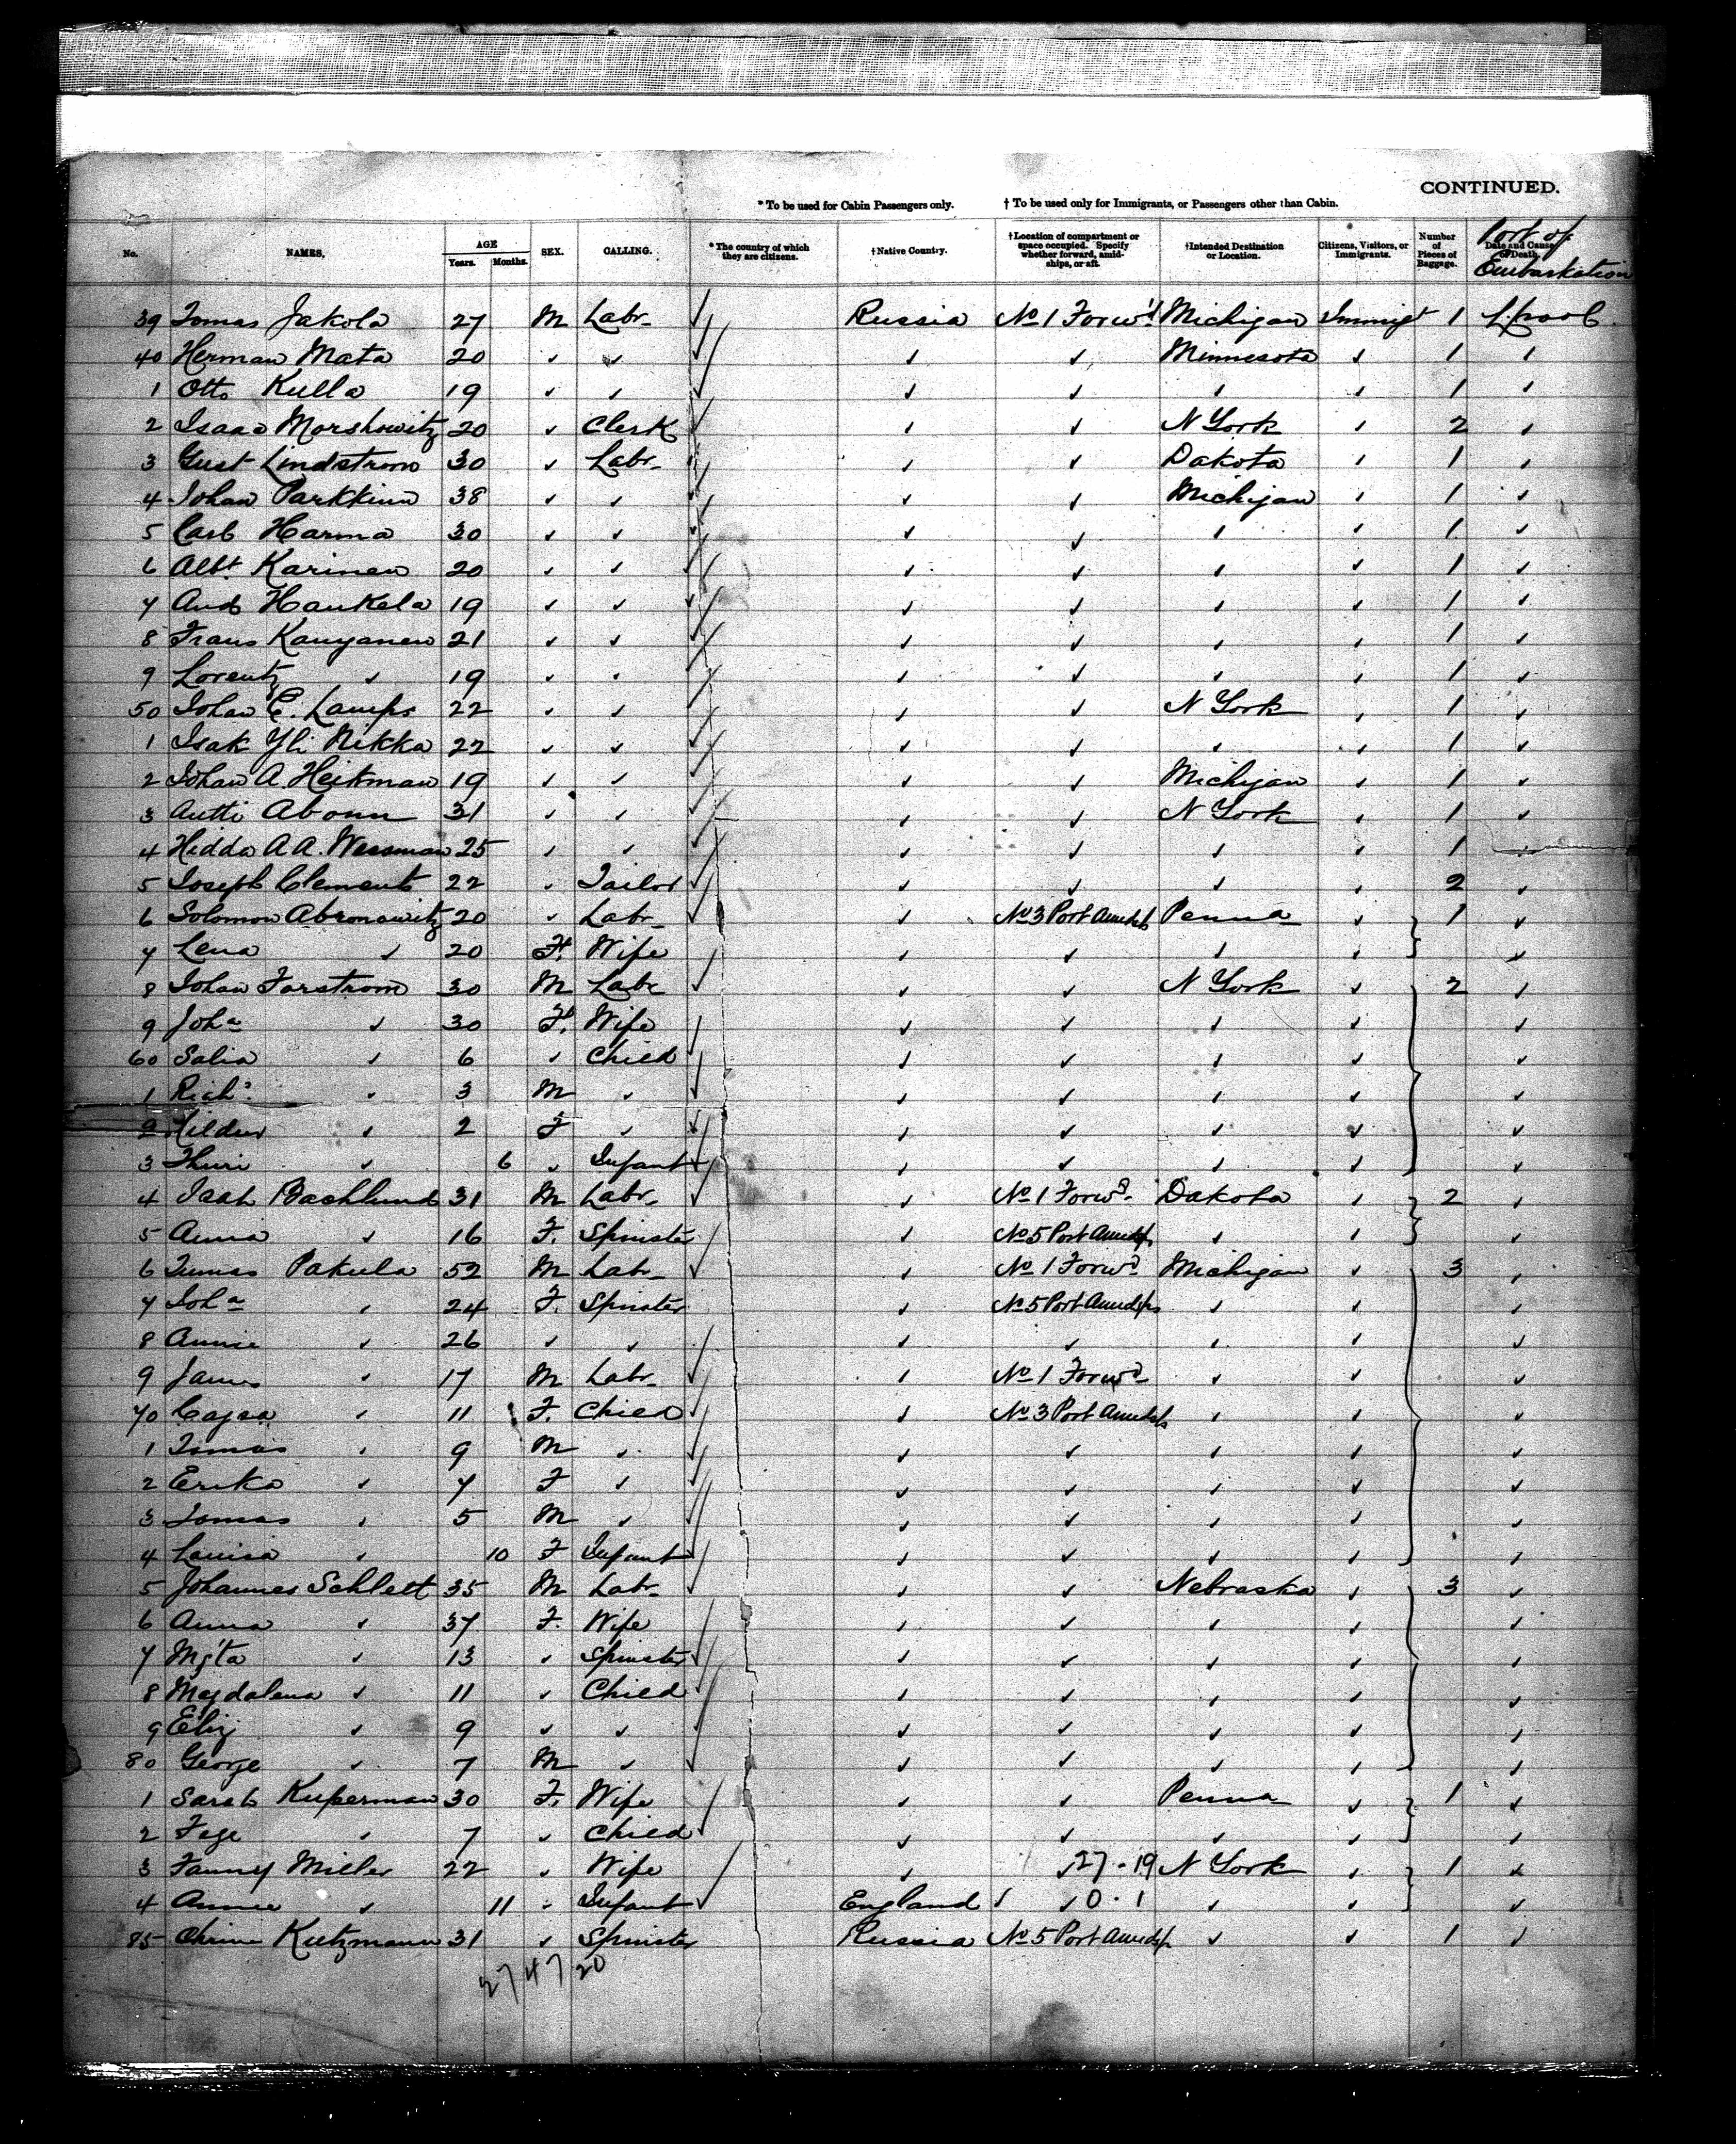 CONTINUED.
* To be used for Cabin Passengers only. † To be used only for Immigrants, or Passengers other than Cabin.
No. NAMES. AGE Years. Months. SEX. CALLING. * The country of which they are citizens. † Native Country. † Location of compartment or space occupied. Specify whether forward, amid-ships, or aft. † Intended Destination or Location. Citizens, Visitors, or Immigrants. Number of Pieces of Baggage. Date and Cause of Death. Port of Embarkation
39 Tomas Jakola 27 M Labr. Russia No 1 Forwd. Michigan Immigt 1 L'pool.
40 Herman Mata 20 ✓ ✓ ✓ ✓ Minnesota ✓ 1 ✓
1 Otto Kulla 19 ✓ ✓ ✓ ✓ ✓ ✓ 1 ✓
2 Isaac Morshowitz 20 ✓ Clerk ✓ ✓ N York ✓ 2 ✓
3 Gust Lindstrom 30 ✓ Labr. ✓ ✓ Dakota ✓ 1 ✓
4 Johan Parkkinn 38 ✓ ✓ ✓ ✓ Michigan ✓ 1 ✓
5 Carl Harma 30 ✓ ✓ ✓ ✓ ✓ ✓ 1 ✓
6 Albt. Karinen 20 ✓ ✓ ✓ ✓ ✓ ✓ 1 ✓
7 And Haukela 19 ✓ ✓ ✓ ✓ ✓ ✓ 1 ✓
8 Frans Kanyanen 21 ✓ ✓ ✓ ✓ ✓ ✓ 1 ✓
9 Lorentz ✓ 19 ✓ ✓ ✓ ✓ ✓ ✓ 1 ✓
50 Johan E. Lamps 22 ✓ ✓ ✓ ✓ N York ✓ 1 ✓
1 Isak Yli Nikka 22 ✓ ✓ ✓ ✓ ✓ ✓ 1 ✓
2 Johan A. Heitman 19 ✓ ✓ ✓ ✓ Michigan ✓ 1 ✓
3 Antti Abonn 31 ✓ ✓ ✓ ✓ N York ✓ 1 ✓
4 Hidda A A. Wessman 25 ✓ ✓ ✓ ✓ ✓ ✓ 1 ✓
5 Joseph Clements 22 ✓ Tailor ✓ ✓ ✓ ✓ 2 ✓
6 Solomon Abromowitz 20 ✓ Labr. ✓ No 3 Port Amidsh Penna ✓ 1 ✓
7 Lena ✓ 20 F. Wife ✓ ✓ ✓ ✓ ✓
8 Johan Forstrom 30 M Labr ✓ ✓ N York ✓ 2 ✓
9 Joha ✓ 30 F. Wife ✓ ✓ ✓ ✓ ✓
60 Salia ✓ 6 ✓ Child ✓ ✓ ✓ ✓ ✓
1 Richd ✓ 3 M ✓ ✓ ✓ ✓ ✓ ✓
2 ✓ 2 F ✓ ✓ ✓ ✓ ✓ ✓
3 Thuri ✓ 6 ✓ Infant ✓ ✓ ✓ ✓ ✓
4 Isak Bachlund 31 M Labr. ✓ No 1 Forwd. Dakota ✓ 2 ✓
5 Anna ✓ 16 F. Spinster ✓ No 5 Port Amidsp ✓ ✓ ✓
6 Tumas Pakula 52 M Labr. ✓ No 1 Forwd. Michigan ✓ 3 ✓
7 Joha ✓ 24 F. Spinster ✓ No 5 Port Amidsps ✓ ✓ ✓
8 Annie ✓ 26 ✓ ✓ ✓ ✓ ✓ ✓ ✓
9 James ✓ 17 M Labr. ✓ No 1 Forwd. ✓ ✓ ✓
70 Cajsa ✓ 11 F. Child ✓ No 3 Port Amidsh ✓ ✓ ✓
1 Tomas ✓ 9 M ✓ ✓ ✓ ✓ ✓ ✓
2 Erika ✓ 7 F ✓ ✓ ✓ ✓ ✓ ✓
3 Jomas ✓ 5 M ✓ ✓ ✓ ✓ ✓ ✓
4 Louisa ✓ 10 F Infant ✓ ✓ ✓ ✓ ✓
5 Johannes Schlett 35 M Labr. ✓ ✓ Nebraska ✓ 3 ✓
6 Anna ✓ 37 F. Wife ✓ ✓ ✓ ✓ ✓
7 Mgta ✓ 13 ✓ Spinster ✓ ✓ ✓ ✓ ✓
8 Magdalena ✓ 11 ✓ Child ✓ ✓ ✓ ✓ ✓
9 Eliz ✓ 9 ✓ ✓ ✓ ✓ ✓ ✓ ✓
80 George ✓ 7 M ✓ ✓ ✓ ✓ ✓ ✓
1 Sarah Kuperman 30 F. Wife ✓ ✓ Penna ✓ 1 ✓
2 Fege ✓ 7 ✓ Child ✓ ✓ ✓ ✓ ✓
3 Fanny Miller 22 ✓ Wife ✓ ✓ 27-19 N York ✓ 1 ✓
4 Annie ✓ 11 ✓ Infant England ✓ 0.1 ✓ ✓ ✓
85 Chrine Kutzmann 31 ✓ Spinster Russia No 5 Port Amidsp ✓ ✓ 1 ✓
27 47 20